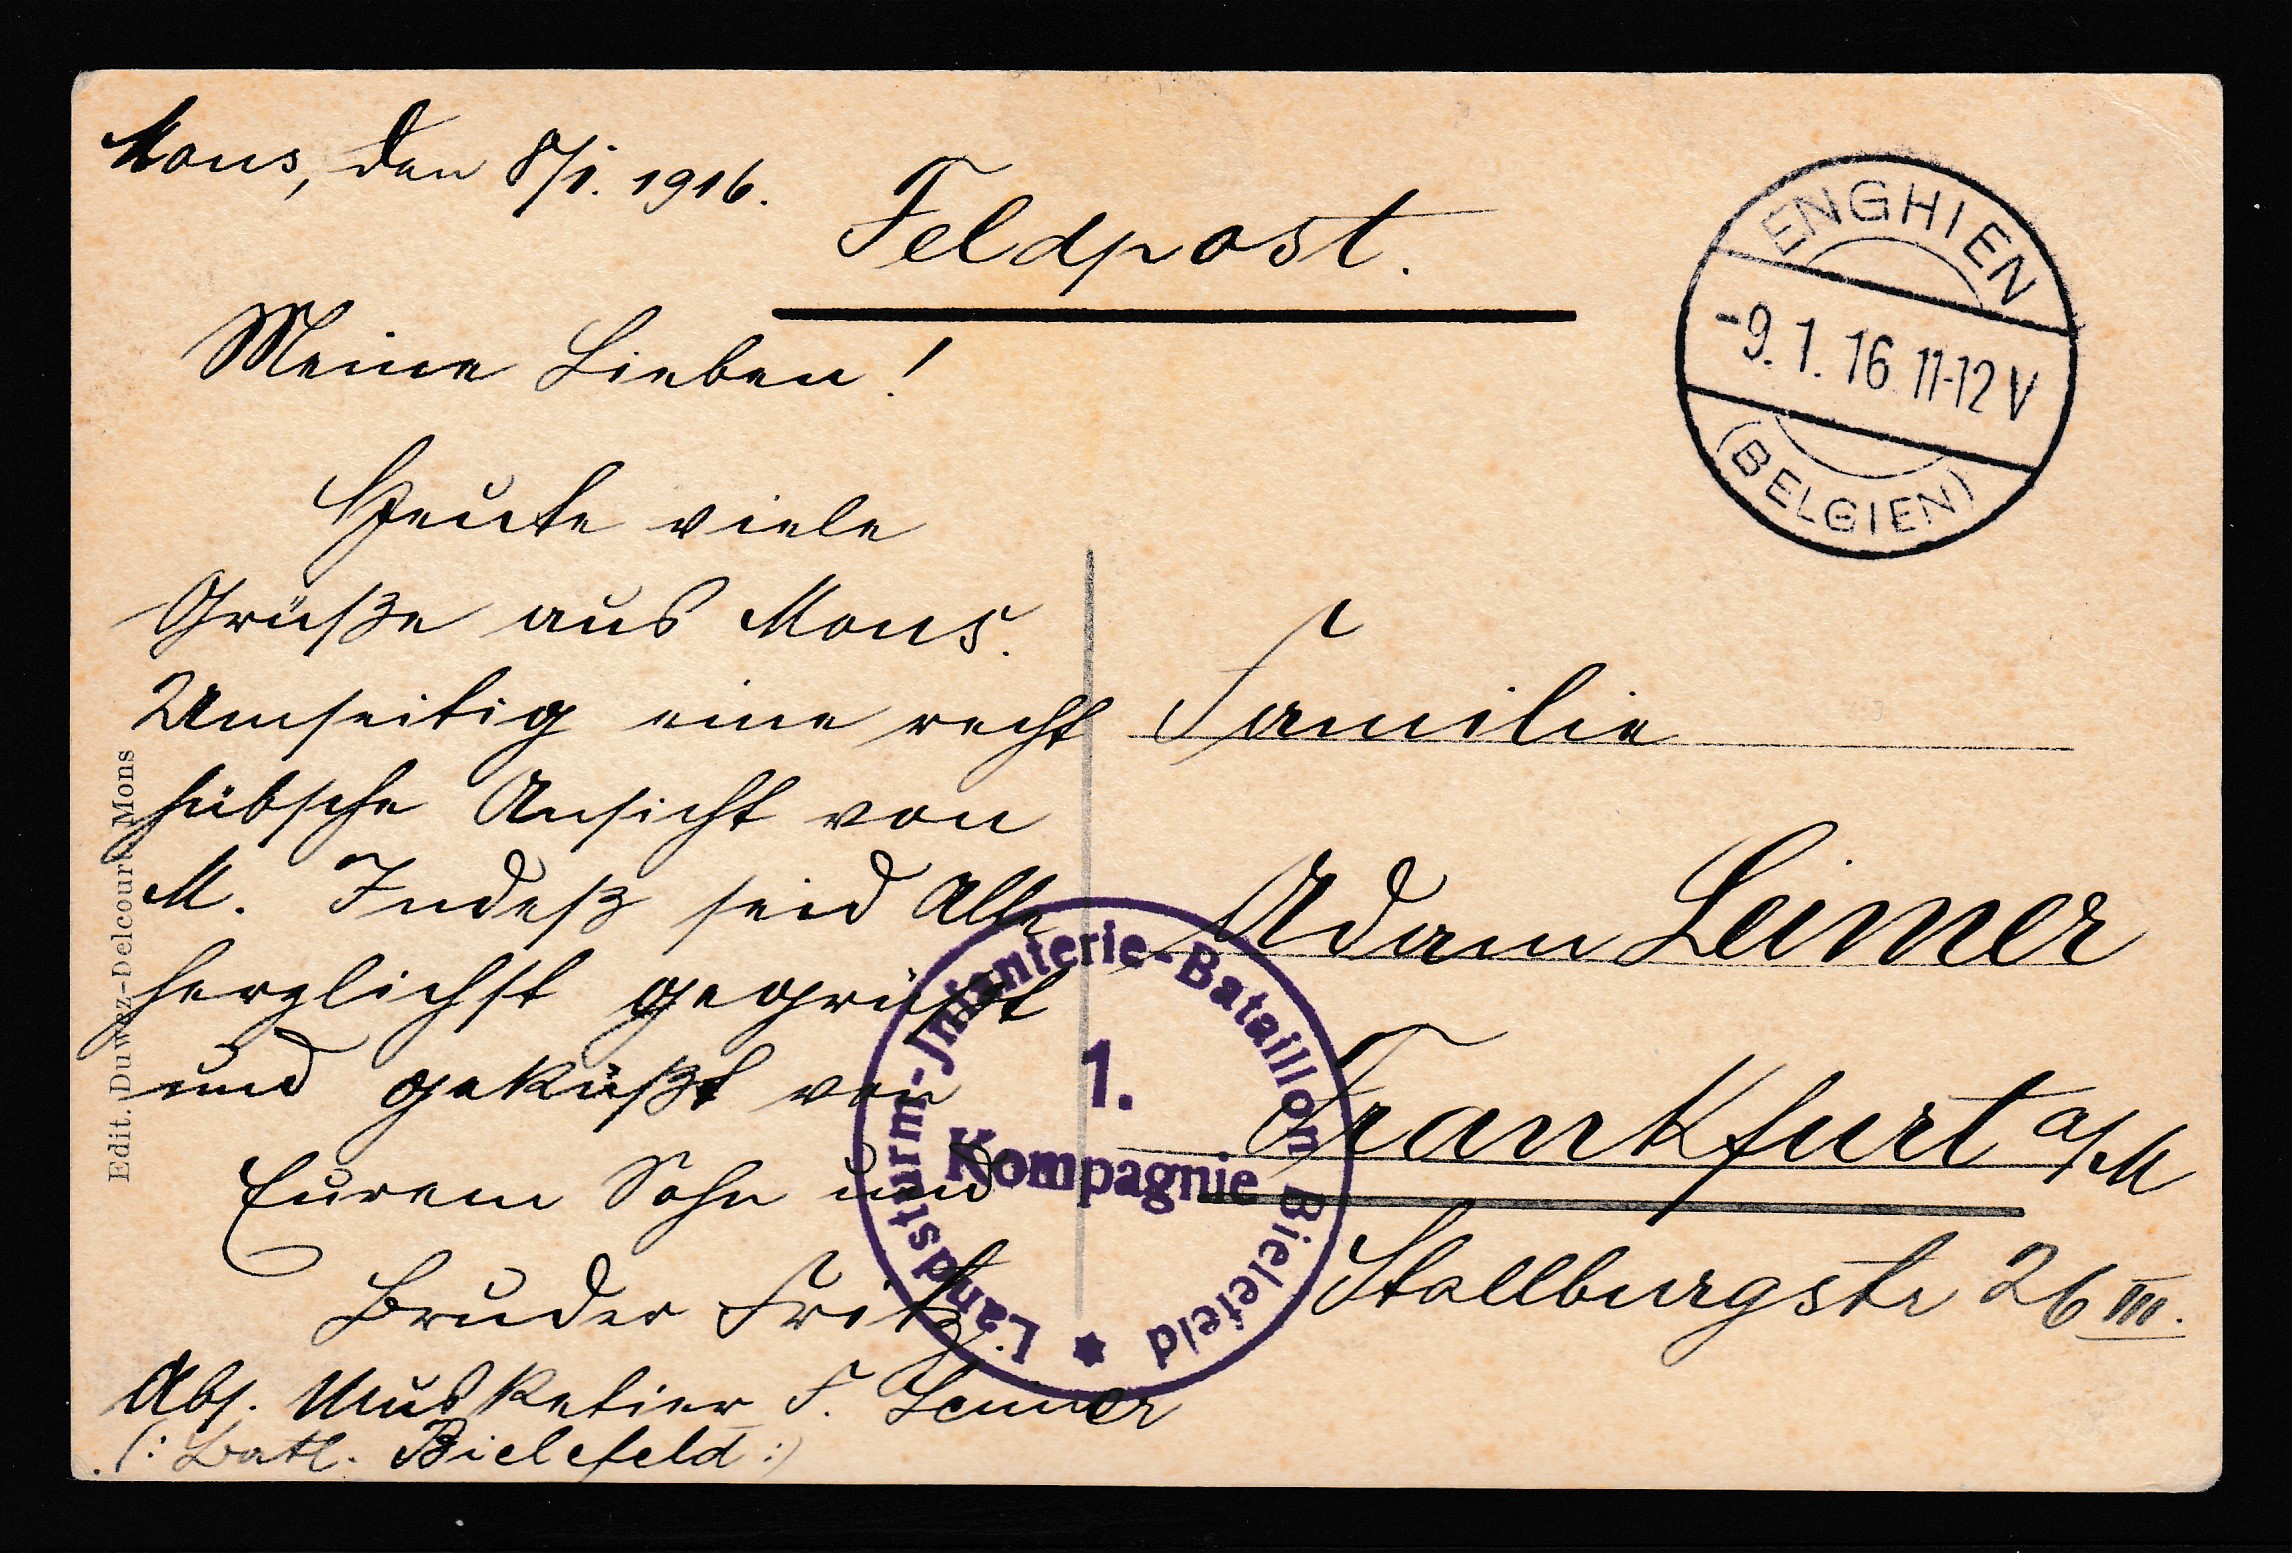 Mons, den 8/1. 1916.
Feldpost.
ENGHIEN
-9. 1. 16 11-12 V
(BELGIEN)
Meine Lieben!
Heute viele
Grüße aus Mons.
Umseitig eine recht
hübsche Ansicht von
M. Indeß seid Alle
herzlichst gegrüßt
und geküßt von
Eurem Sohn und
Bruder Fritz.
Abs. Musketier F. Leimer
(: Batl. Bielefeld :)
Familie
Adam Leimer
Frankfurt a/M
Stallburgstr 26 III.
Landsturm-Infanterie-Bataillon Bielefeld
1.
Kompagnie
Edit. Duwez-Delcourt, Mons